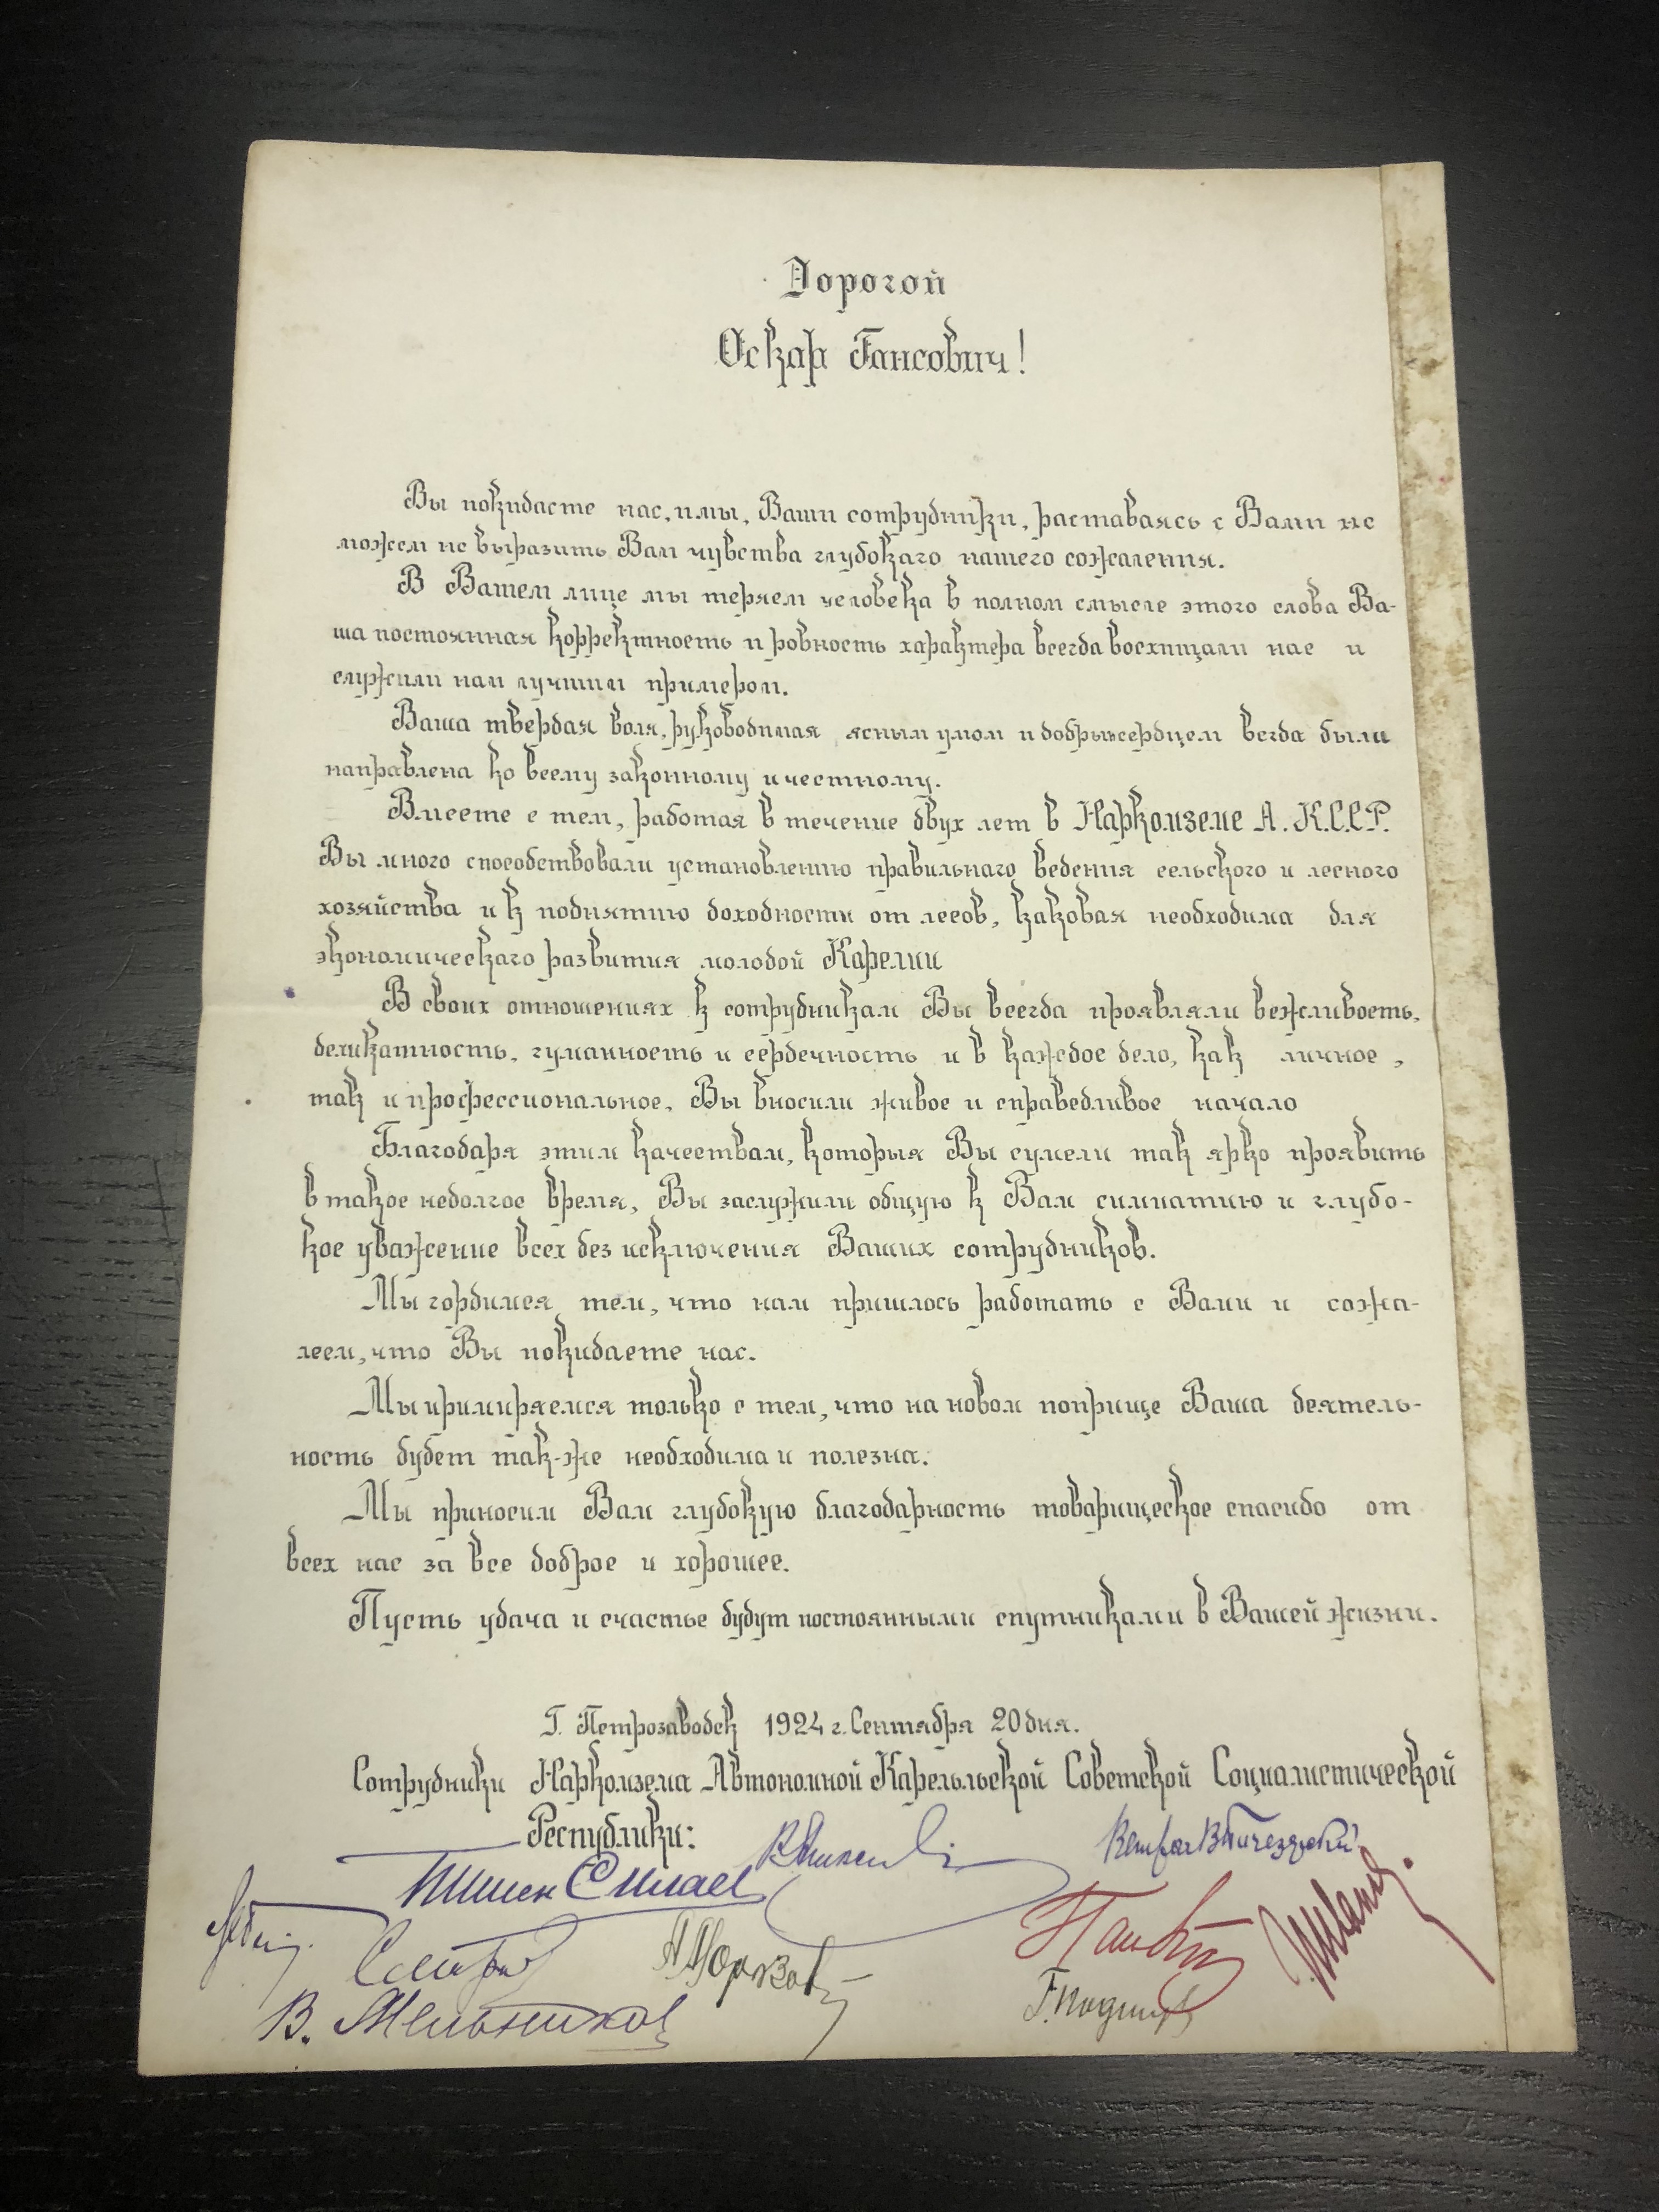 Дорогой
Оскар Гансович!
Вы покидаете нас, и мы, Ваши сотрудники, раставаясь с Вами не
можем не выразить Вам чувства глубокаго нашего сожаления.
В Вашем лице мы теряем человека в полном смысле этого слова Ва-
ша постоянная корректность и ровность характера всегда восхищали нас и
служили нам лучшим примером.
Ваша твердая воля, руководимая ясным умом и добрым сердцем всегда были
направлена ко всему законному и честному.
Вместе с тем, работая в течение двух лет в Наркомземе А. К.С.С.Р.
Вы много способствовали установлению правильнаго ведения сельского и лесного
хозяйства и к поднятию доходности от лесов, каковая необходима для
экономическаго развития молодой Карелии
В своих отношениях к сотрудникам Вы всегда проявляли вежливость,
деликатность, гуманность и сердечность и в каждое дело, как личное,
так и профессиональное, Вы вносили живое и справедливое начало
Благодаря этим качествам, которыя Вы сумели так ярко проявить
в такое недолгое время, Вы заслужили общую к Вам симпатию и глубо-
кое уважение всех без исключения Ваших сотрудников.
Мы гордимся тем, что нам пришлось работать с Вами и сожа-
леем, что Вы покидаете нас.
Мы примиряемся только с тем, что на новом поприще Ваша деятель-
ность будет так-же необходима и полезна.
Мы приносим Вам глубокую благодарность товарищеское спасибо от
всех нас за все доброе и хорошее.
Пусть удача и счастье будут постоянными спутниками в Вашей жизни.
Г. Петрозаводск 1924 г. Сентября 20 дня.
Сотрудники Наркомзема Автономной Карельльской Советской Социалистической
Республики:
В. Мельников